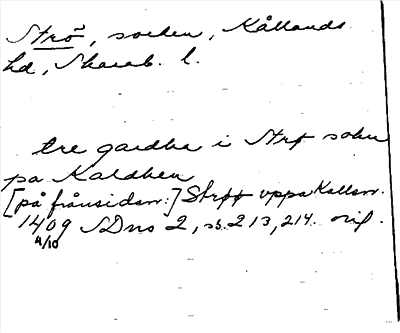 Strö, socken, Kållands
hd, Skarab. l.
tre gardha i Strø sokn
pa Kaldhen
[på frånsidan:] Strøø uppa Kallan.
1409 SDns 2, s. 213, 214. orig.
4/10